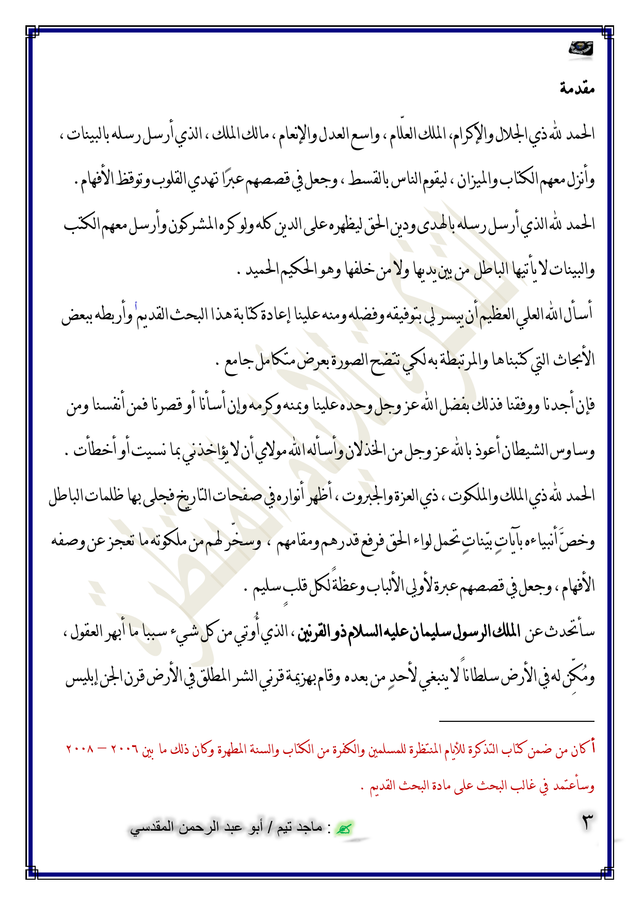 مقدمة
الحمد لله ذي الجلال والإكرام، الملك العلّام ، واسع العدل والإنعام ، مالك الملك ، الذي أرسل رسله بالبينات ،
وأنزل معهم الكتاب والميزان ، ليقوم الناس بالقسط ، وجعل في قصصهم عبرًا تهدي القلوب وتوقظ الأفهام .
الحمد لله الذي أرسل رسله بالهدى ودين الحق ليظهره على الدين كله ولو كره المشركون وأرسل معهم الكتب
والبينات لا يأتيها الباطل من بين يديها ولا من خلفها وهو الحكيم الحميد .
أسأل الله العلي العظيم أن ييسر لي بتوفيقه وفضله ومنه علينا إعادة كتابة هذا البحث القديم أ وأربطه ببعض
الأبحاث التي كتبناها والمرتبطة به لكي تتضح الصورة بعرض متكامل جامع .
فإن أجدنا ووفقنا فذلك بفضل الله عز وجل وحده علينا وبمنه وكرمه وإن أسأنا أو قصرنا فمن أنفسنا ومن
وساوس الشيطان أعوذ بالله عز وجل من الخذلان وأسأله الله مولاي أن لا يؤاخذني بما نسيت أو أخطأت .
الحمد لله ذي الملك والملكوت ، ذي العزة والجبروت ، أظهر أنواره في صفحات التاريخ فجلى بها ظلمات الباطل
وخصَّ أنبياءه بآياتٍ بيّناتٍ تحمل لواء الحق فرفع قدرهم ومقامهم ، وسخّر لهم من ملكوته ما تعجز عن وصفه
الأفهام ، وجعل في قصصهم عبرة لأولي الألباب وعظةً لكل قلبٍ سليم .
سأتحدث عن الملك الرسول سليمان عليه السلام ذو القرنين ، الذي أُوتي من كل شيء سببا ما أبهر العقول ،
ومُكّن له في الأرض سلطاناً لا ينبغي لأحدٍ من بعده وقام بهزيمة قرني الشر المطلق في الأرض قرن الجن إبليس
أ كان من ضمن كتاب التذكرة للأيام المنتظرة للمسلمين والكفرة من الكتاب والسنة المطهرة وكان ذلك ما بين ٢٠٠٦ – ٢٠٠٨
وسأعتمد في غالب البحث على مادة البحث القديم .
: ماجد تيم / أبو عبد الرحمن المقدسي
٣
التذكرة للأيام المنتظرة